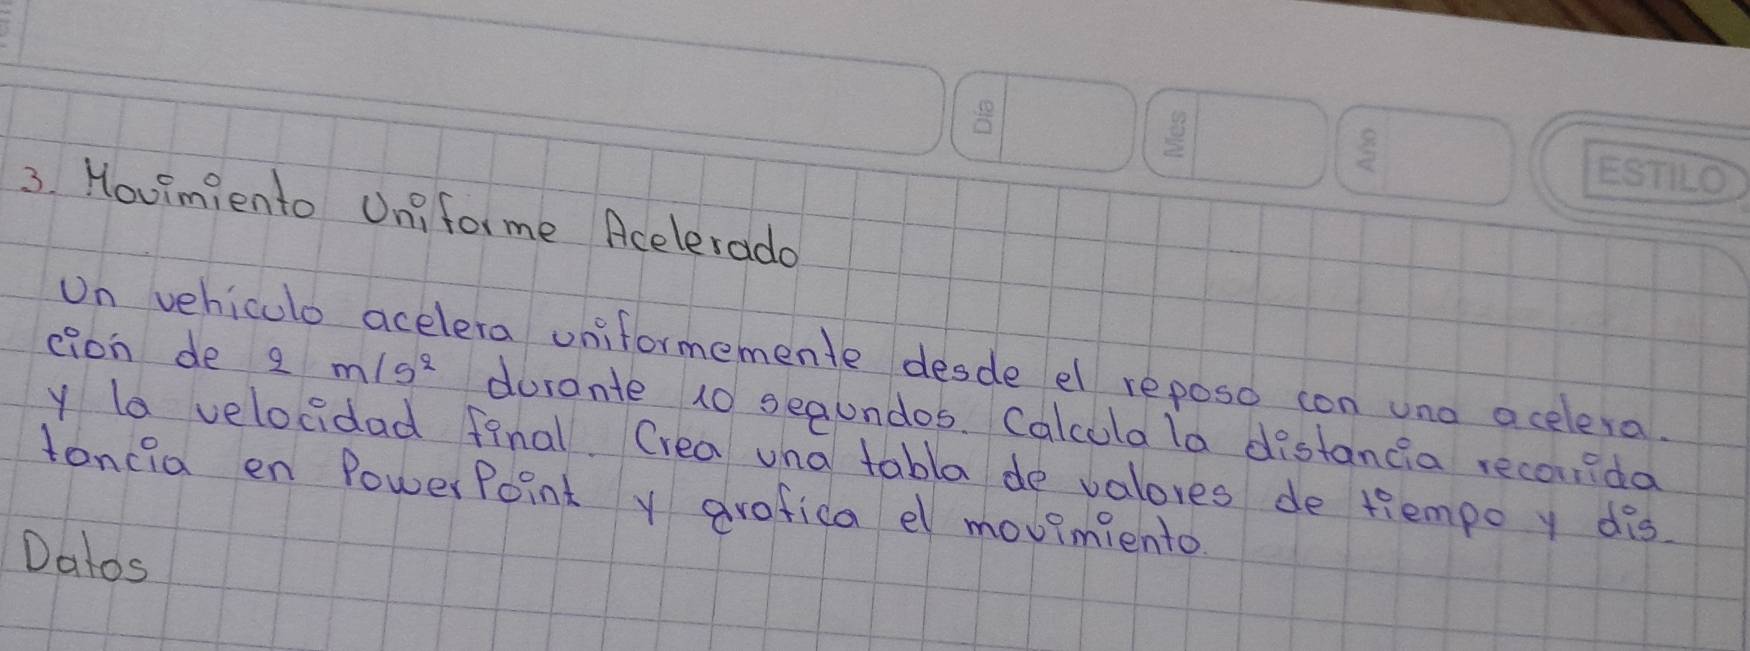 Día
Mes
Año
ESTILO
3. Movimiento Uniforme Acelerado
Un vehiculo acelera uniformemente desde el reposo con una acelera-
ción de 2 m/s² durante 10 segundos. Calcula la distancia recorrida
y la velocidad final. Crea una tabla de valores de tiempo y dis-
tancia en PowerPoint y grafica el movimiento.
Datos